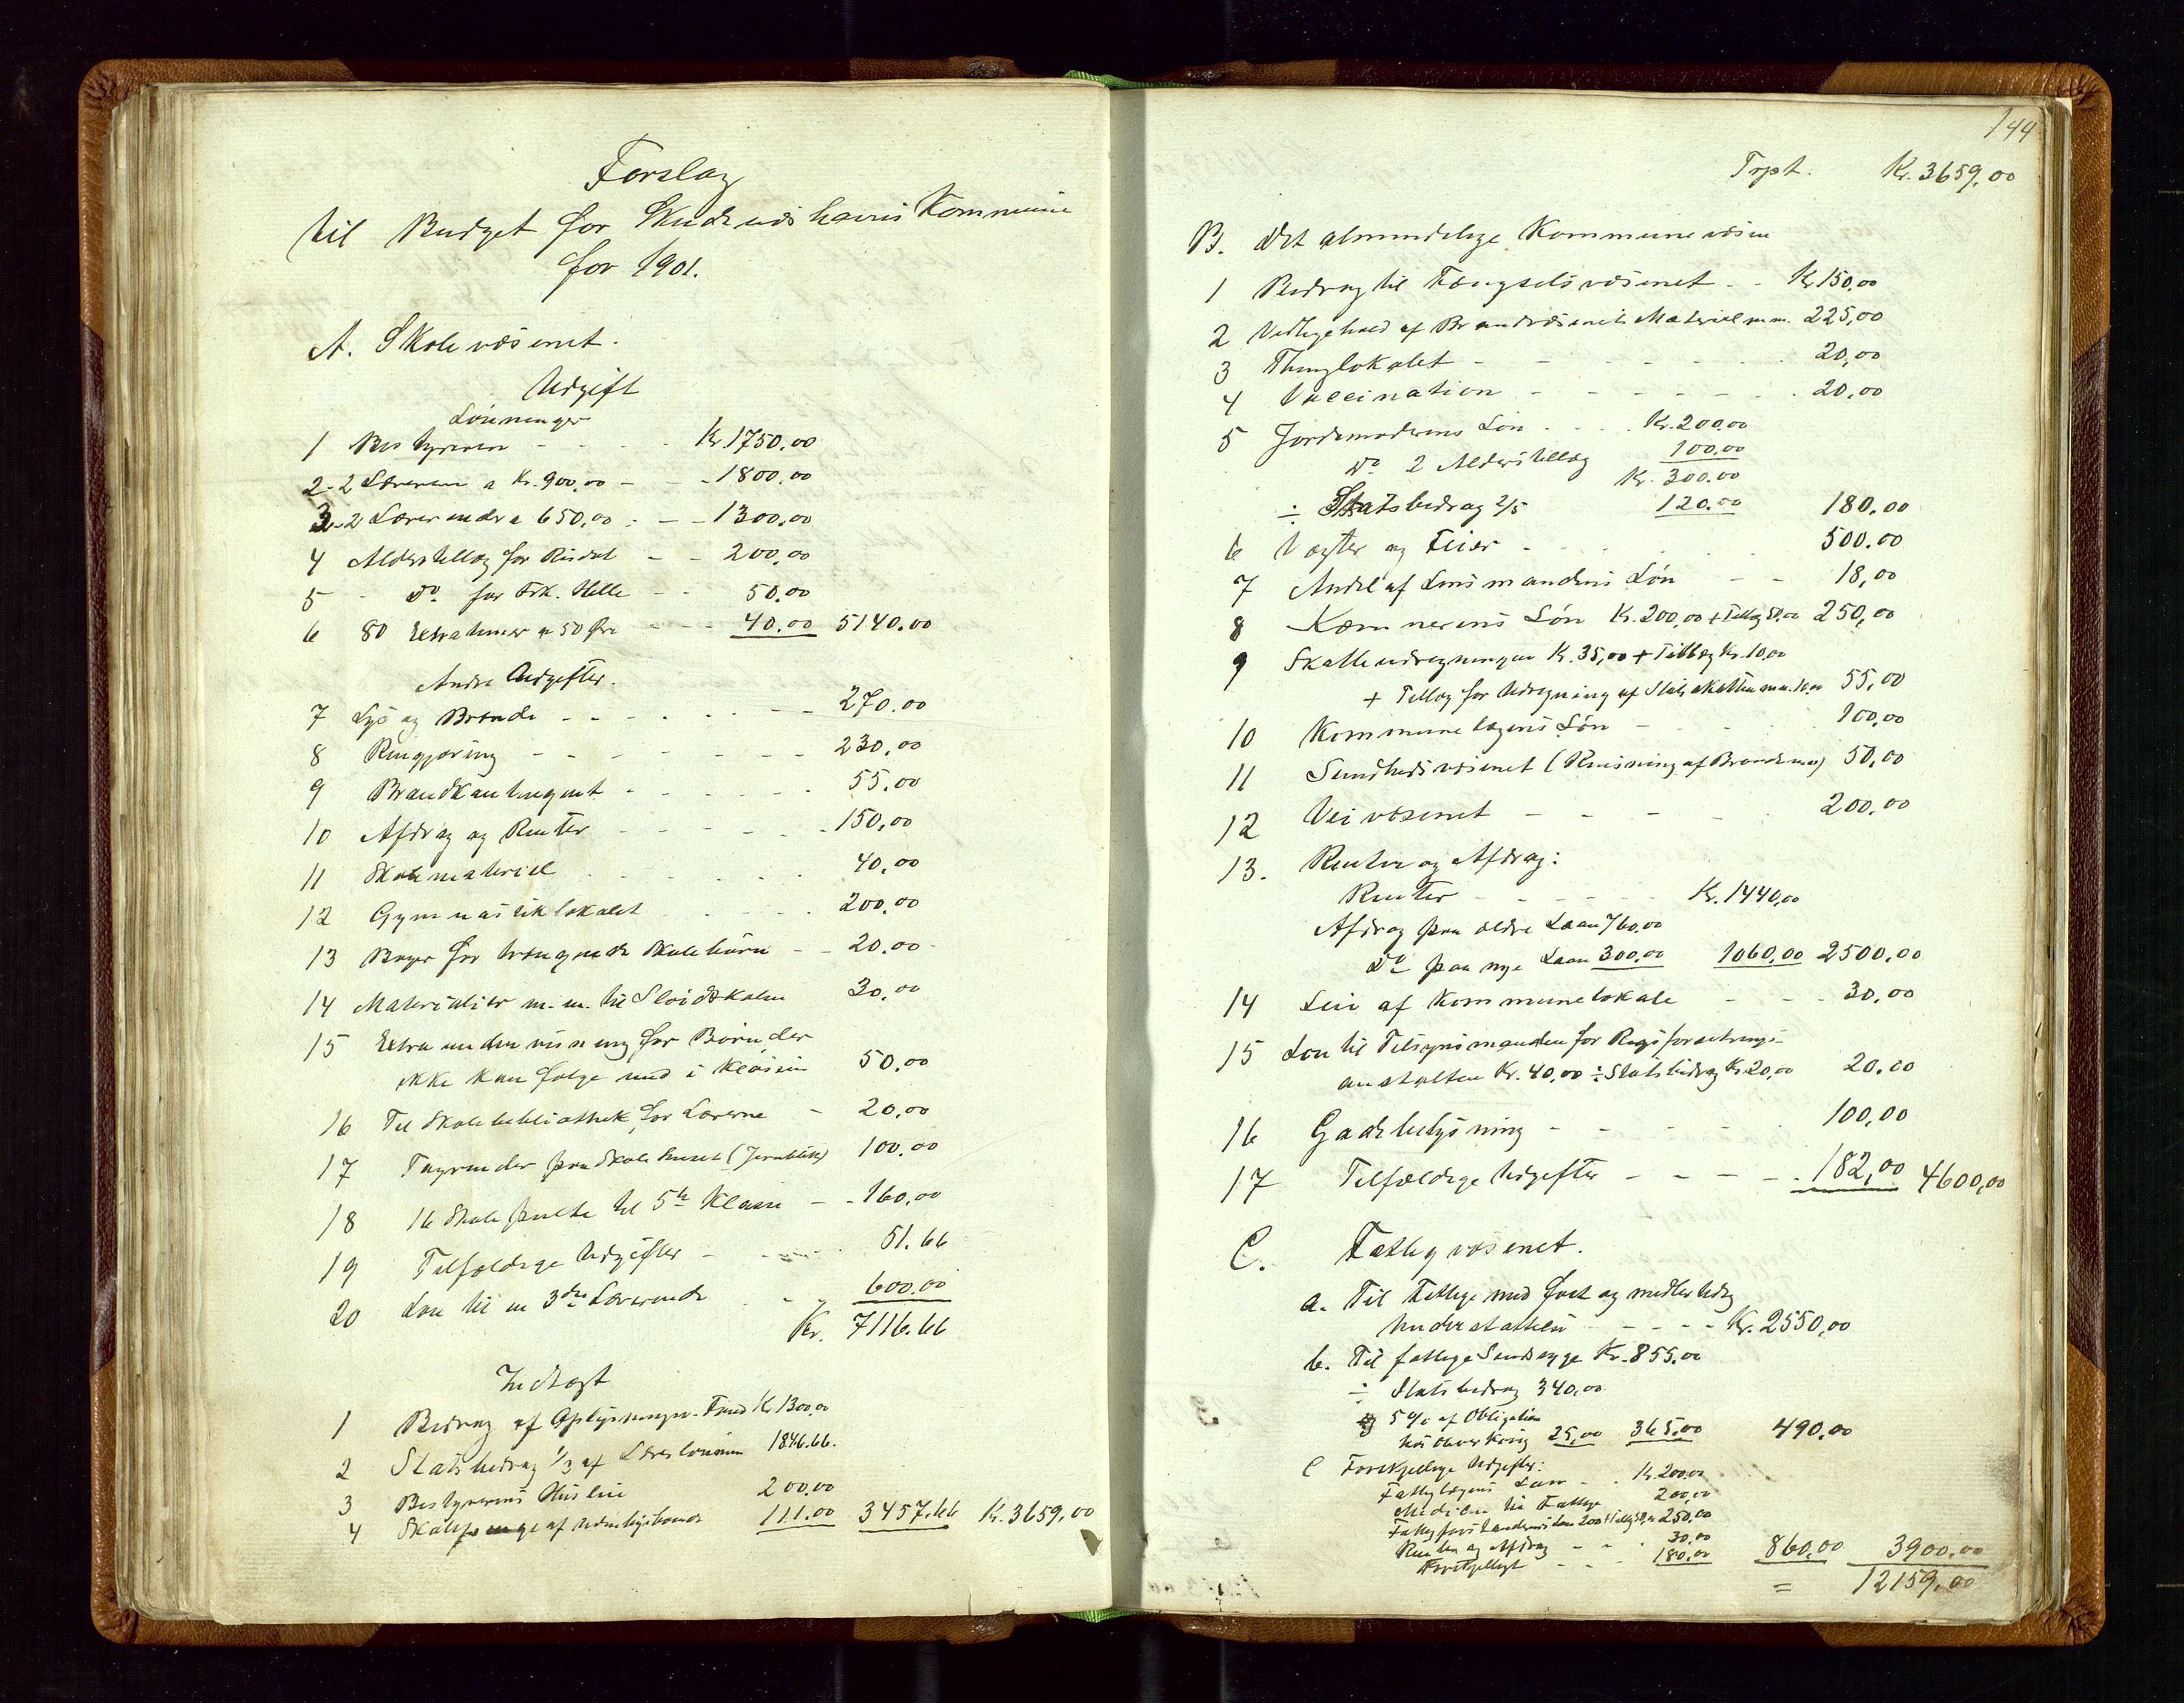 Forslag
til Budget for Skudeneshavns Kommune
for 1901.
A. Skolevæsenet.
Udgift
Lønninger
1 Bestyreren - - - Kr. 1750.00
2 - 2 Lærere a Kr. 900,00 - - 1800.00
3 - 2 Lærerinder a 650,00 - - 1300,00
4 Alderstillæg for Risdal - - 200,00
5 - do for Frk. Helle - - 50.00
6 80 Extratimer a 50 Øre - - 40.00 5140.00
Andre Udgifter.
7 Lys og Brænde - - - - 270.00
8 Rengjøring - - - - 230,00
9 Brandkontingent - - - - 55.00
10 Afdrag og Renter - - - - 150,00
11 Skolemateriel - - - - 40.00
12 Gymnastiklokalet - - - 200.00
13 Bøger for trængende Skolebørn - - 20.00
14 Materialier m.m. til Sløidskolen 30.00
15 Extra undervisning for Børn, der
ikke kan følge med i Klassen 50.00
16 Til Skolebibliothek for Lærerne - 20.00
17 Tagrender paa Skolehuset (Jernblik) 100.00
18 16 Skolepulte til 5te Klasse - - 160.00
19 Tilfældige Udgifter - - 51.66
20 Løn til en 3die Lærerinde - - 600.00
Kr. 7116.66
Indtægt
1 Bidrag af Oplysningsv. Fond Kr. 1300,00
2 Statsbidrag 1/3 af Lærerlønnen 1846.66.
3 Bestyrerens Husleie 200.00
4 Skolepenge af Udenbysboende 111.00 3457.66 Kr. 3659,00
144
Trpt. Kr. 3659,00
B. Det almindelige Kommunevæsen
1 Bidrag til Fængselsvæsenet - - Kr. 150,00
2 Vedligehold af Brandvæsenets Materiel m.m. 225,00
3 Thinglokalet - - - 20,00
4 Vaccination - - - - 20,00
5 Jordemoderens Løn - - - Kr. 200.00
do 2 Alderstillæg 100.00
Kr. 300.00
÷ Statsbidrag 2/5 120.00 180.00
6 Vægter og Feier - - - 500.00
7 Andel af Lensmandens Løn - - 18,00
8 Kæmnerens Løn Kr. 200,00 + Tillæg 50.00 250,00
9 Skatteudregningen Kr. 35,00 + Tillæg Kr. 10,00
+ Tillæg for Udregning af Statsskatten m.m. 10.00 55,00
10 Kommunelægens Løn - - 100,00
11 Sundhedsvæsenet (Rensning af Brønde m.m.) 50,00
12 Veivæsenet - - - - 200.00
13. Renter og Afdrag:
Renter - - - - Kr. 1440,00
Afdrag paa ældre Laan 760.00
do paa nye Laan 300.00 1060.00 2500.00
14 Leie af Kommunelokale - - - 30.00
15 Løn til Tilsynsmanden for Røgforsætnings-
anstalten Kr. 40,00 ÷ Statsbidrag Kr. 20,00 20.00
16 Gadebelysning - - - - 100,00
17 Tilfældige Udgifter - - - - 182,00 4600,00
C. Fattigvæsenet.
a. Til Fattige med fast og midlertidig
Understøttelse - - - - Kr. 2550,00
b. Til fattige Sindssyge Kr. 855.00
÷ Statsbidrag 340,00
og 5 % af Obligation
hos Oliver Kvig 25,00 365.00 490.00
c Forskjellige Udgifter:
Fattiglægens Løn - - Kr. 200.00
Medicin til Fattige 200,00
Fattigforstanderens Løn 200 + Tillæg 50,00 250.00
Renter og Afdrag - - - 30.00
Forskjelligt - - - 180.00 860.00 3900.00
= 12159,00